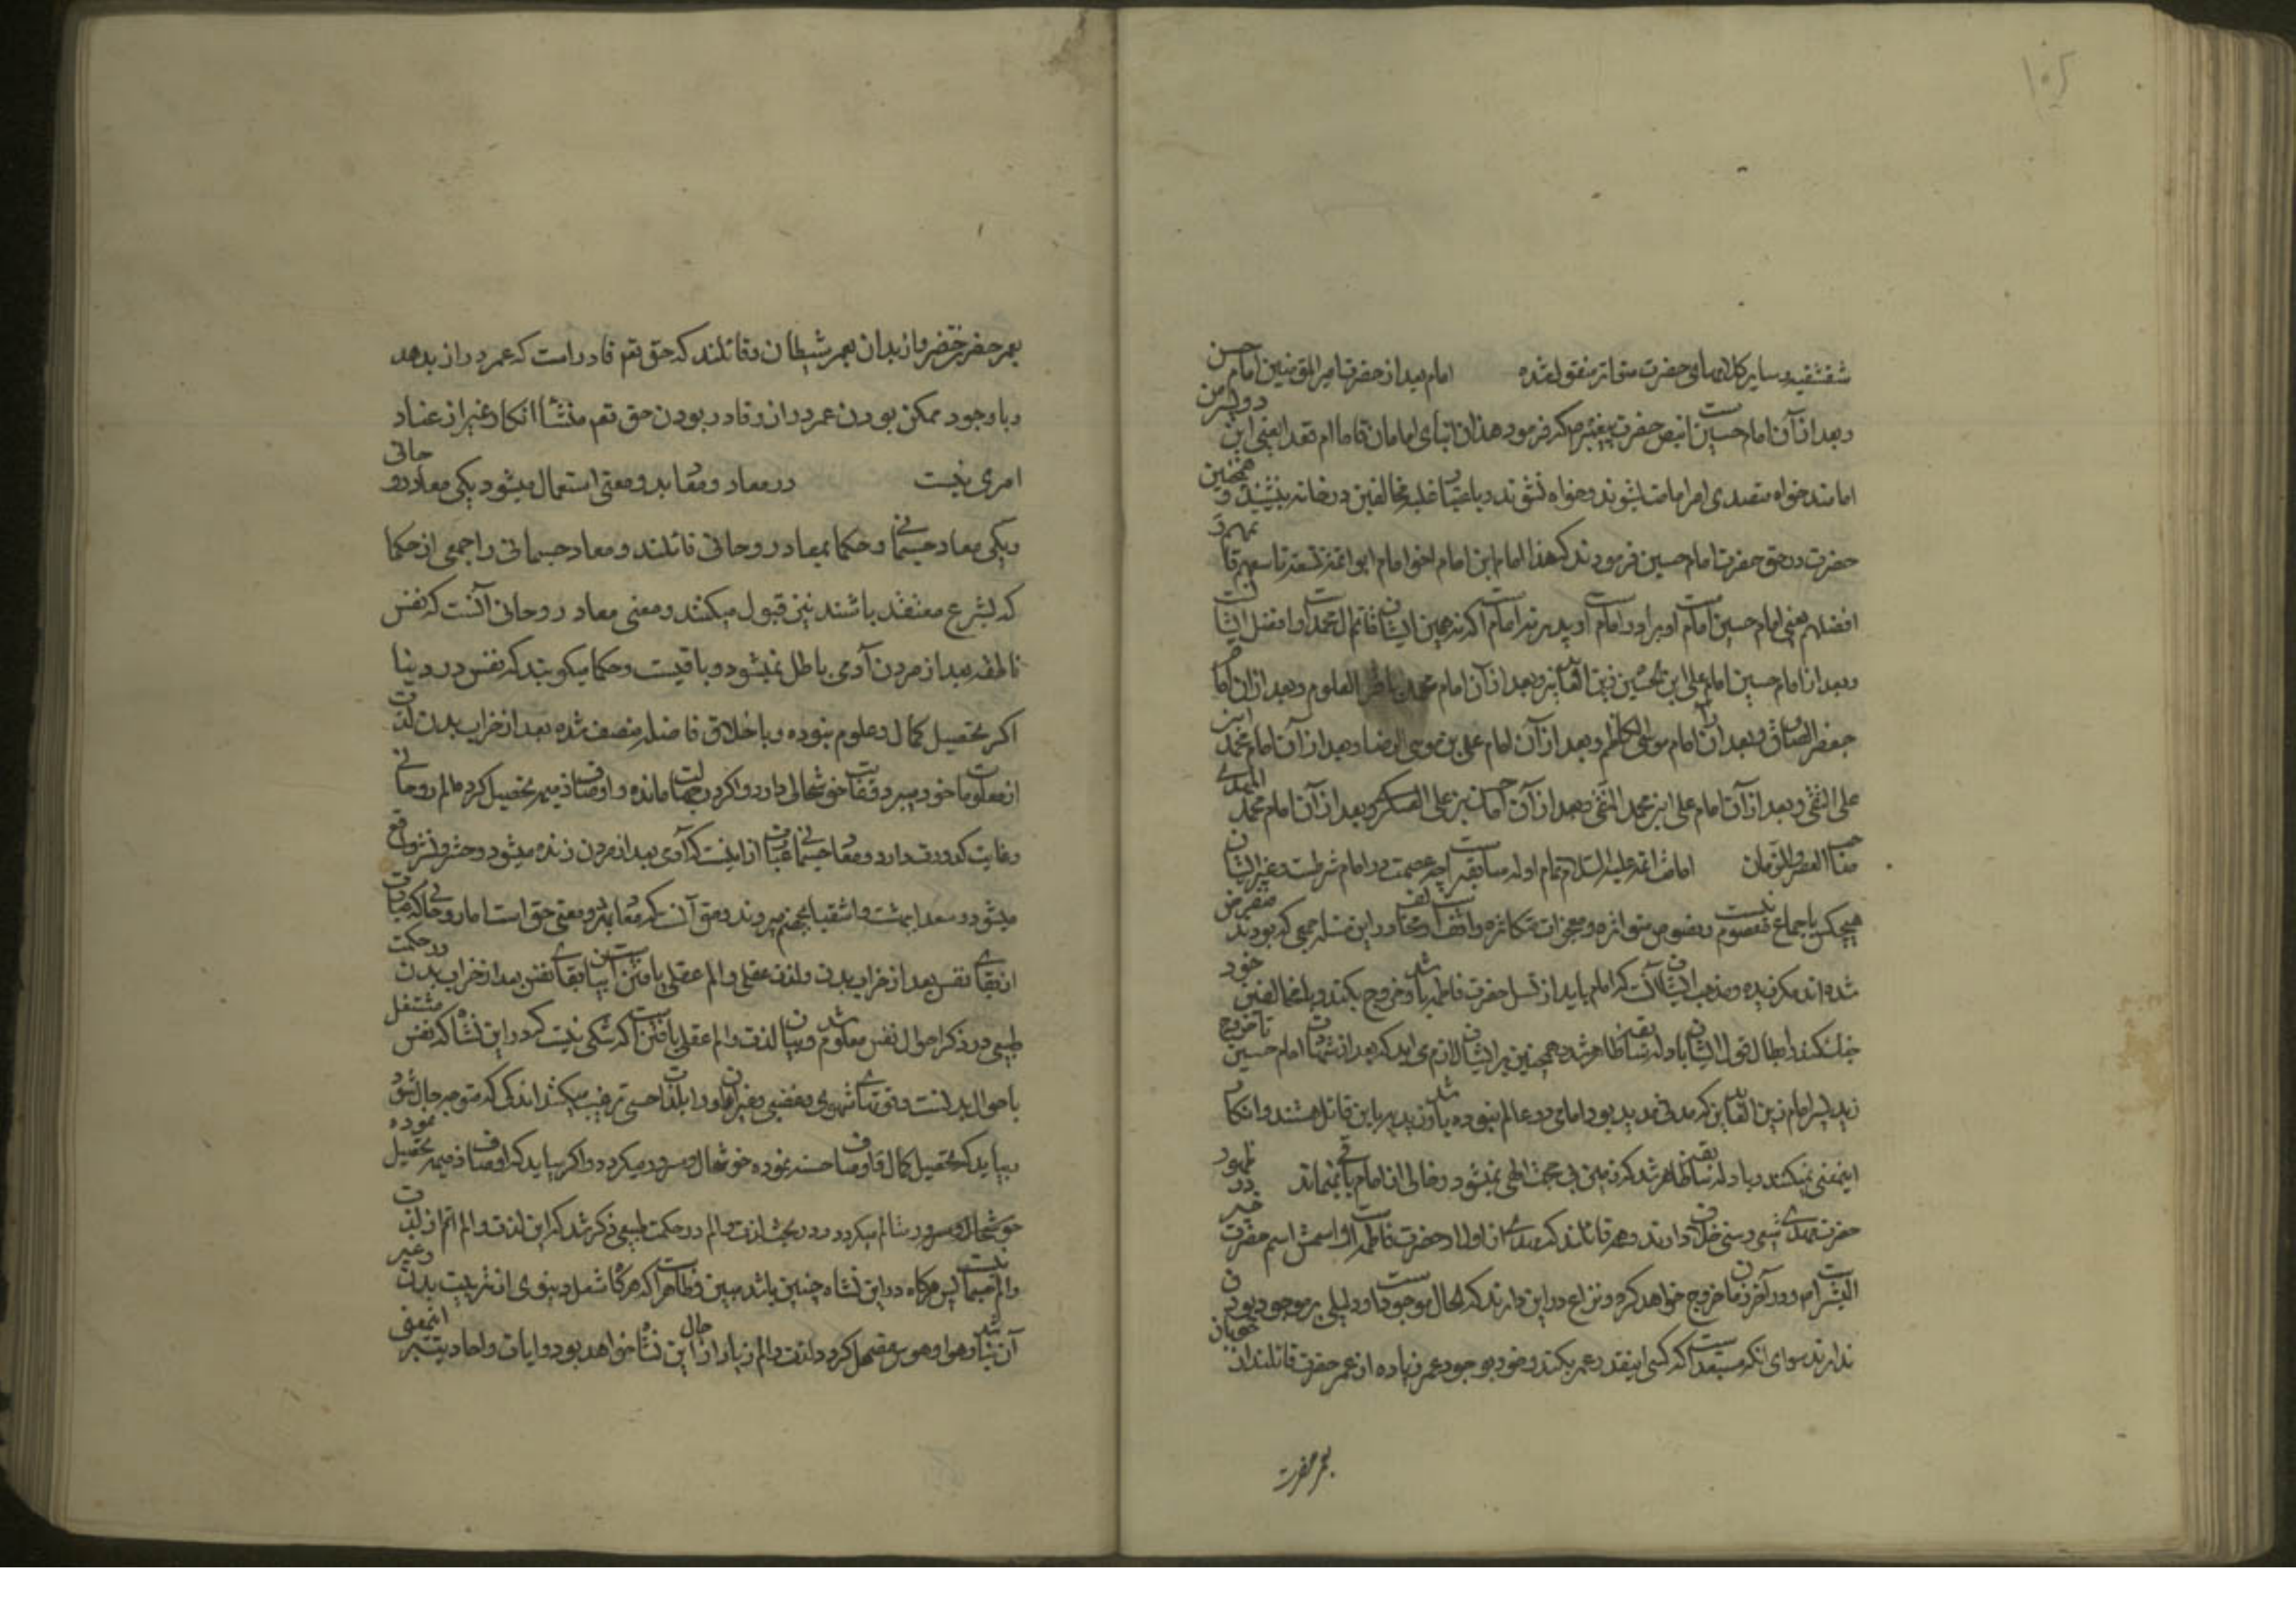 ۱۰۵
شقشقیه و سایر کلامهای حضرت متواتر منقول شده امام بعد از حضرت امیرالمؤمنین امام حسن
و بعد از آن امام حسین است بنص حضرت پیغمبر ص که فرمود هذان ابنای امامان قاما ام قعدا یعنی این دو پسر من
امامند خواه متصدی امر امامت بشوند و خواه نشوند و باعتبار غلبه مخالفین در خانه بنشینند و همچنین
حضرت در حق حضرت امام حسین فرمودند که هذا امام ابن امام اخو امام ابو ائمة تسعة تاسعهم قائمهم
افضلهم یعنی امام حسین امام است و برادر امام است و پدر نه امام است که نهمین ایشان قائم آل محمد است و افضل ایشان است
و بعد از امام حسین امام علی ابن الحسین زین العابدین و بعد از آن امام محمد باقر العلوم و بعد از آن امام
جعفر الصادق و بعد از آن امام موسی الکاظم و بعد از آن امام علی بن موسی الرضا و بعد از آن امام محمد ابن
علی التقی و بعد از آن امام علی ابن محمد النقی و بعد از آن امام حسن بن علی العسکری و بعد از آن امام محمد المهدی
صاحب العصر والزمان امامت ائمه علیهم السلام تمام اوله سابقه است چه عصمت در امام شرطست و غیر ایشان
هیچکس باجماع معصوم نیست و نصوص متواتره و معجزات متکاثره و اتفاقست و مخالف در این مسئله جمعی که بودند منقرض
شده اند مگر زیدیه و مذهب ایشان آنست که امام باید از نسل حضرت فاطمه باشد و خروج بکند و با مخالفین خود
جنگ کند و ابطال قول ایشان باوله سابقه ظاهر شد و همچنین بر ایشان لازم می اید که بعد از شهادت امام حسین تا خروج
زید پسر امام زین العابدین که مدتی مدید بود امامی در عالم نبوده باشد و زیدیه باین قائل هستند و انکار
اینمعنی نمیکنند و باوله سابقه ظاهر شد که زمین بی حجت باقی نمیشود و خالی از امام نمیماند در ظهور
حضرت مهدی شیعی و سنی خلاف دارند و همه قائلند که مهدی از اولاد حضرت فاطمه است و اسمش اسم حضرت خیر
البشر است و در آخر زمان خروج خواهد کرد و نزاع در این دارند که الحال موجود است و دلیلی بر موجود بودن
ندارند سوای انکه مستبعد است که کسی اینقدر عمر بکند و خود بوجود عمر زیاده از عمر حضرت قائلند از خوبان
بعمر حضرت
بعمر حضرت خضر و از بدان بعمر شیطان و قائلند که حق تعه قادر است که عمر دراز بدهد
و باوجود ممکن بودن عمر دراز و قادر بودن حق تعه منشأ انکار غیر از عناد
امری نیست در معاد و معاد بدو معنی استعمال میشود یکی معاد روحانی
و یکی معاد جسمانی و حکما بمعاد روحانی قائلند و معاد جسمانی را جمعی از حکما
که بشرع معتقد باشند نیز قبول میکنند و معنی معاد روحانی آنست که نفس
ناطقه بعد از مردن آدمی باطل نمیشود و باقیست و حکما میکویند که نفس در دنیا
اکر تحصیل کمال و علوم نموده و باخلاق فاضله متصف شده بعد از خراب بدن لذت
از معلومات خود میبرد و غایت خوشحالی دارد و اکر در جهالت مانده و اوصاف ذمیمه تحصیل کرده الم روحانی
و غایت کدورت دارد و معاد جسمانی عبارت از اینست که آدمی بعد از مردن زنده میشود و حشر و نشر واقع
میشود و سعدا ببهشت و اشقیا بجهنم میروند و حق آن که معاد بهر دو معنی حق است اما روحانی که عبارت
از بقای نفس بعد از خراب بدن و لذت عقلی و الم عقلی یافتن است بیان بقای نفس بعد از خراب بدن در حکمت
طبیعی در ذکر احوال نفس معلوم شد و بیان لذت و الم عقلی یافتن است که شکی نیست که در این نشأه که نفس مشتغل
باحوال بدنست و قوتهای شهوی و غضبی و غیر ان او را بلذات حسی ترغیب میکشد اندکی که متوجه حال خود شود
بیابد که تحصیل کمال و اوصاف حسنه نموده خوشحال و مسرور میکردد و اکر بیابد که اوصاف ذمیمه تحصیل نموده
در بحث لذت و الم در حکمت طبیعی ذکر شد که این لذت و الم اتم از لذت
و الم جسمانیست پس هرکاه در این نشأه چنین باشد مبین و ظاهر است که هرکاه شغل دنیوی از تربیت بدن و غیر
آن نباشد و هوا و هوس مضمحل کردد لذت و الم زیاد از حال این نشأه خواهد بود و ایات و احادیث بر اینمعنی